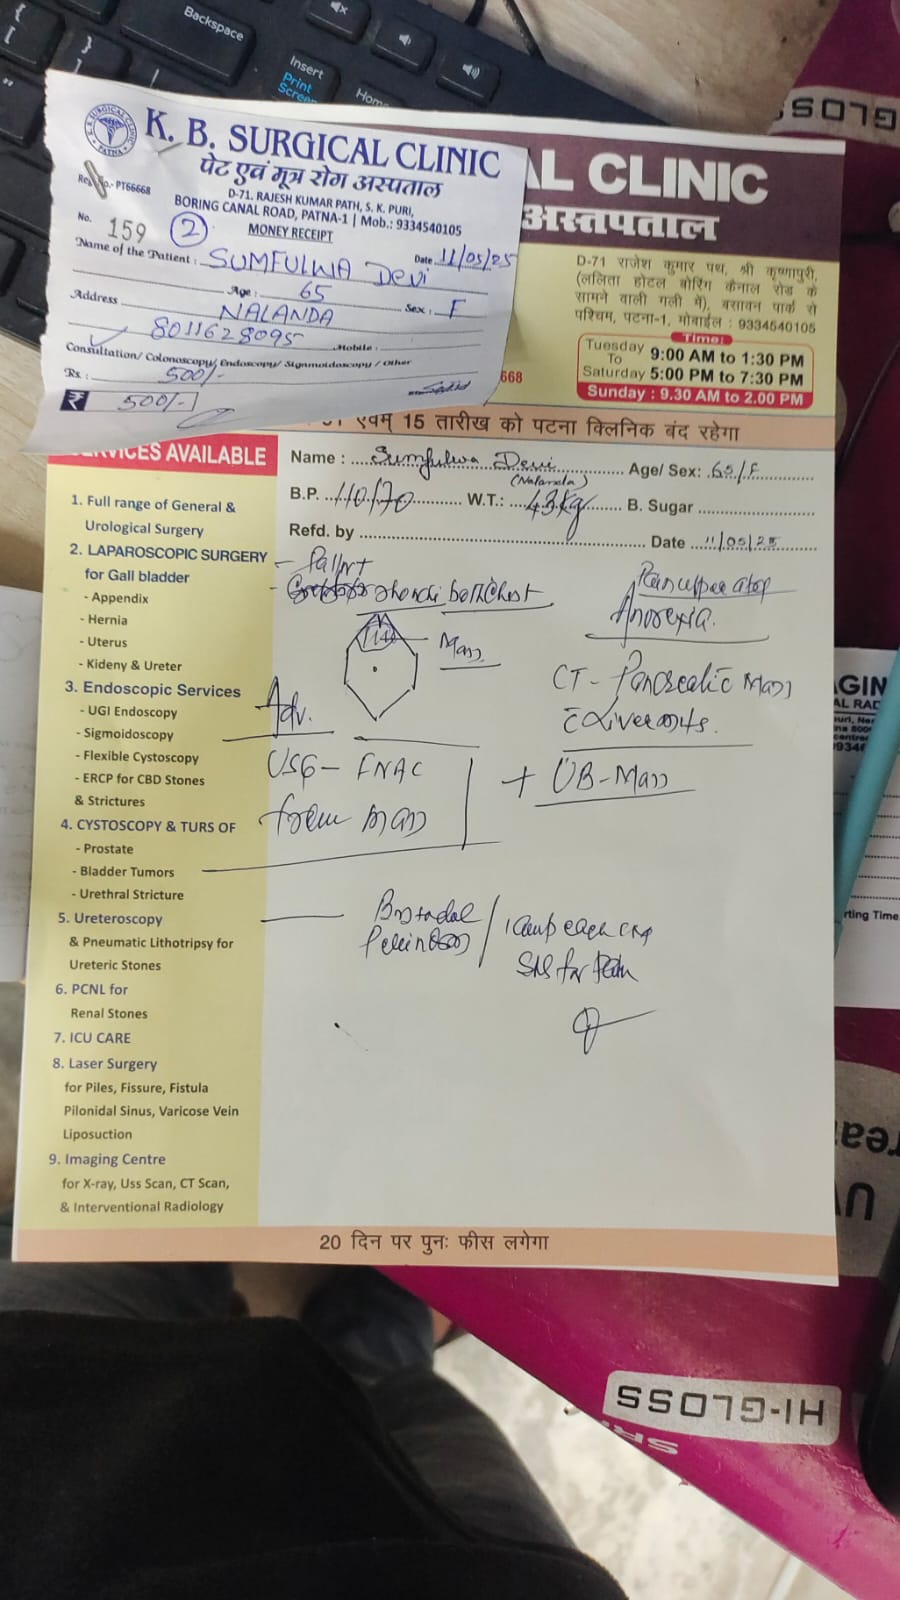 Backspace
Insert
Print
Screen
Home
GLOSS
K. B. SURGICAL CLINIC
पेट एवं मूत्र रोग अस्पताल
D-71. RAJESH KUMAR PATH, S. K. PURI,
BORING CANAL ROAD, PATNA-1 | Mob.: 9334540105
MONEY RECEIPT
PT66668
No. 159 2
Date 11/05/25
Name of the Patient : SUMFULWA DEVI
Age : 65 Sex : F
Address NALANDA
8011628095 Mobile :
Consultation/ Colonoscopy/ Endoscopy/ Sigmoidoscopy / Other
Rs. : 500/-
₹ 500/-
AL CLINIC
अस्तपताल
D-71 राजेश कुमार पथ, श्री कृष्णापुरी,
(ललिता होटल बोरिंग कैनाल रोड के
सामने वाली गली में), बसावन पार्क से
पश्चिम, पटना-1, मोबाईल : 9334540105
Time:
Tuesday To Saturday
9:00 AM to 1:30 PM
5:00 PM to 7:30 PM
Sunday : 9.30 AM to 2.00 PM
668
एवम् 15 तारीख को पटना क्लिनिक बंद रहेगा
SERVICES AVAILABLE
1. Full range of General &
Urological Surgery
2. LAPAROSCOPIC SURGERY
for Gall bladder
- Appendix
- Hernia
- Uterus
- Kideny & Ureter
3. Endoscopic Services
- UGI Endoscopy
- Sigmoidoscopy
- Flexible Cystoscopy
- ERCP for CBD Stones
& Strictures
4. CYSTOSCOPY & TURS OF
- Prostate
- Bladder Tumors
- Urethral Stricture
5. Ureteroscopy
& Pneumatic Lithotripsy for
Ureteric Stones
6. PCNL for
Renal Stones
7. ICU CARE
8. Laser Surgery
for Piles, Fissure, Fistula
Pilonidal Sinus, Varicose Vein
Liposuction
9. Imaging Centre
for X-ray, Uss Scan, CT Scan,
& Interventional Radiology
Name : Sumfulwa Devi Age/ Sex: 65/F
(Nalanda)
B.P. 110/70 W.T.: 43kg B. Sugar
Refd. by Date 11/05/25
Chest
Anorexia.
Mass
CT - Pancreatic Mass
Adv.
USG - FNAC
from mass
+ UB-Mass
for Pain
20 दिन पर पुनः फीस लगेगा
AGIN
AL RAD
rting Time
HI-GLOSS